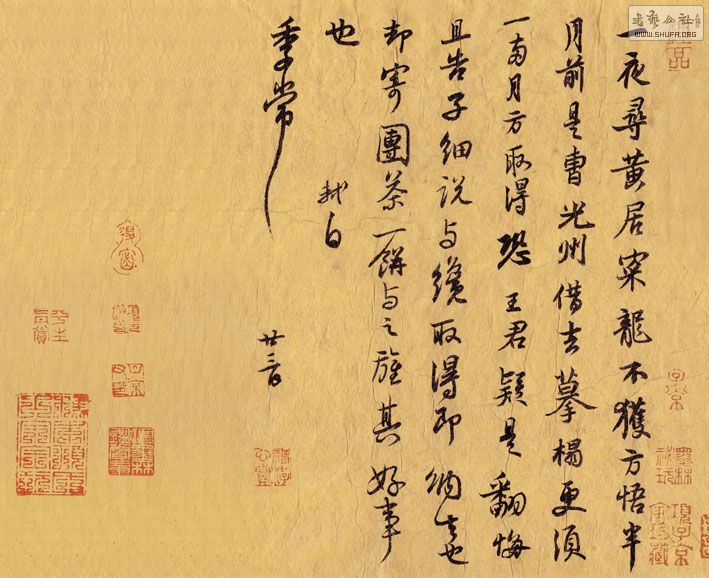 一夜尋黃居寀龍不獲方悟半
月前是曹光州借去摹榻更須
一兩月方取得恐王君疑是翻悔
且告子細說与纔取得即納去也
却寄團茶一餅与之旌其好事
也
軾白
季常
廿三日
書藝公社
WWW.SHUFA.ORG